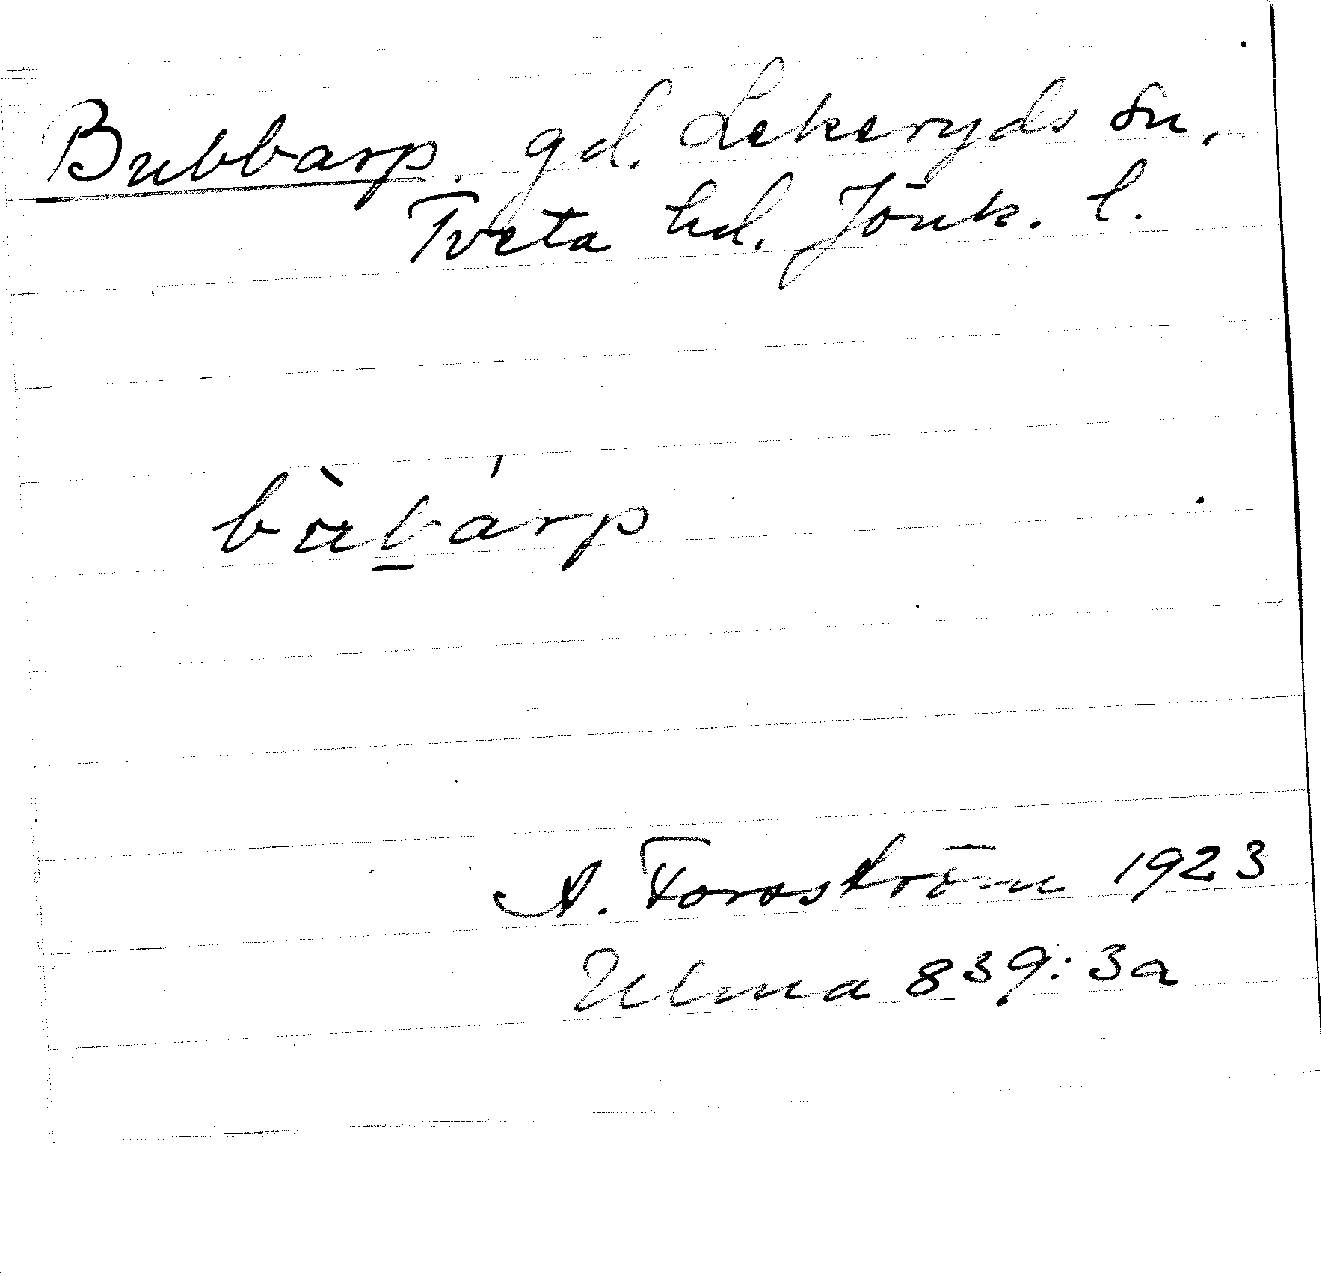 Bubbarp. gd. Lekeryds sn.
Tveta hd. Jönk. l.
bàb̲árp
A. Forsström 1923
Ulma 839:3a